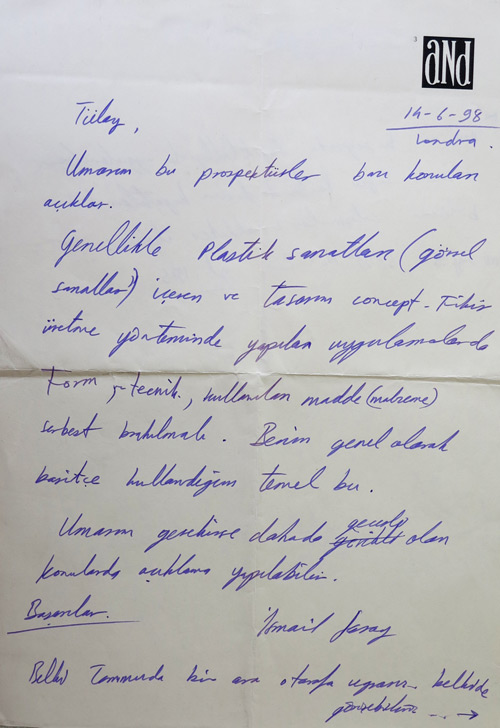 3
and
14-6-98
Londra.
Tülay,
Umarım bu prospektüsler bazı konuları
açıklar.
Genellikle plastik sanatları (görsel
sanatlar) içeren ve tasarım concept - Fikir
üretme yönteminde yapılan uygulamalarda
Form, teknik, kullanılan madde (malzeme)
serbest bırakılmalı. Benim genel olarak
basitçe kullandığım temel bu.
Umarım gecikirse dahada gerekli olan
konularda açıklama yapılabilir.
Başarılar.
İsmail Saray
Belki Temmuzda bir ara otarafa uğrarım belkide
görüşebiliriz ... →